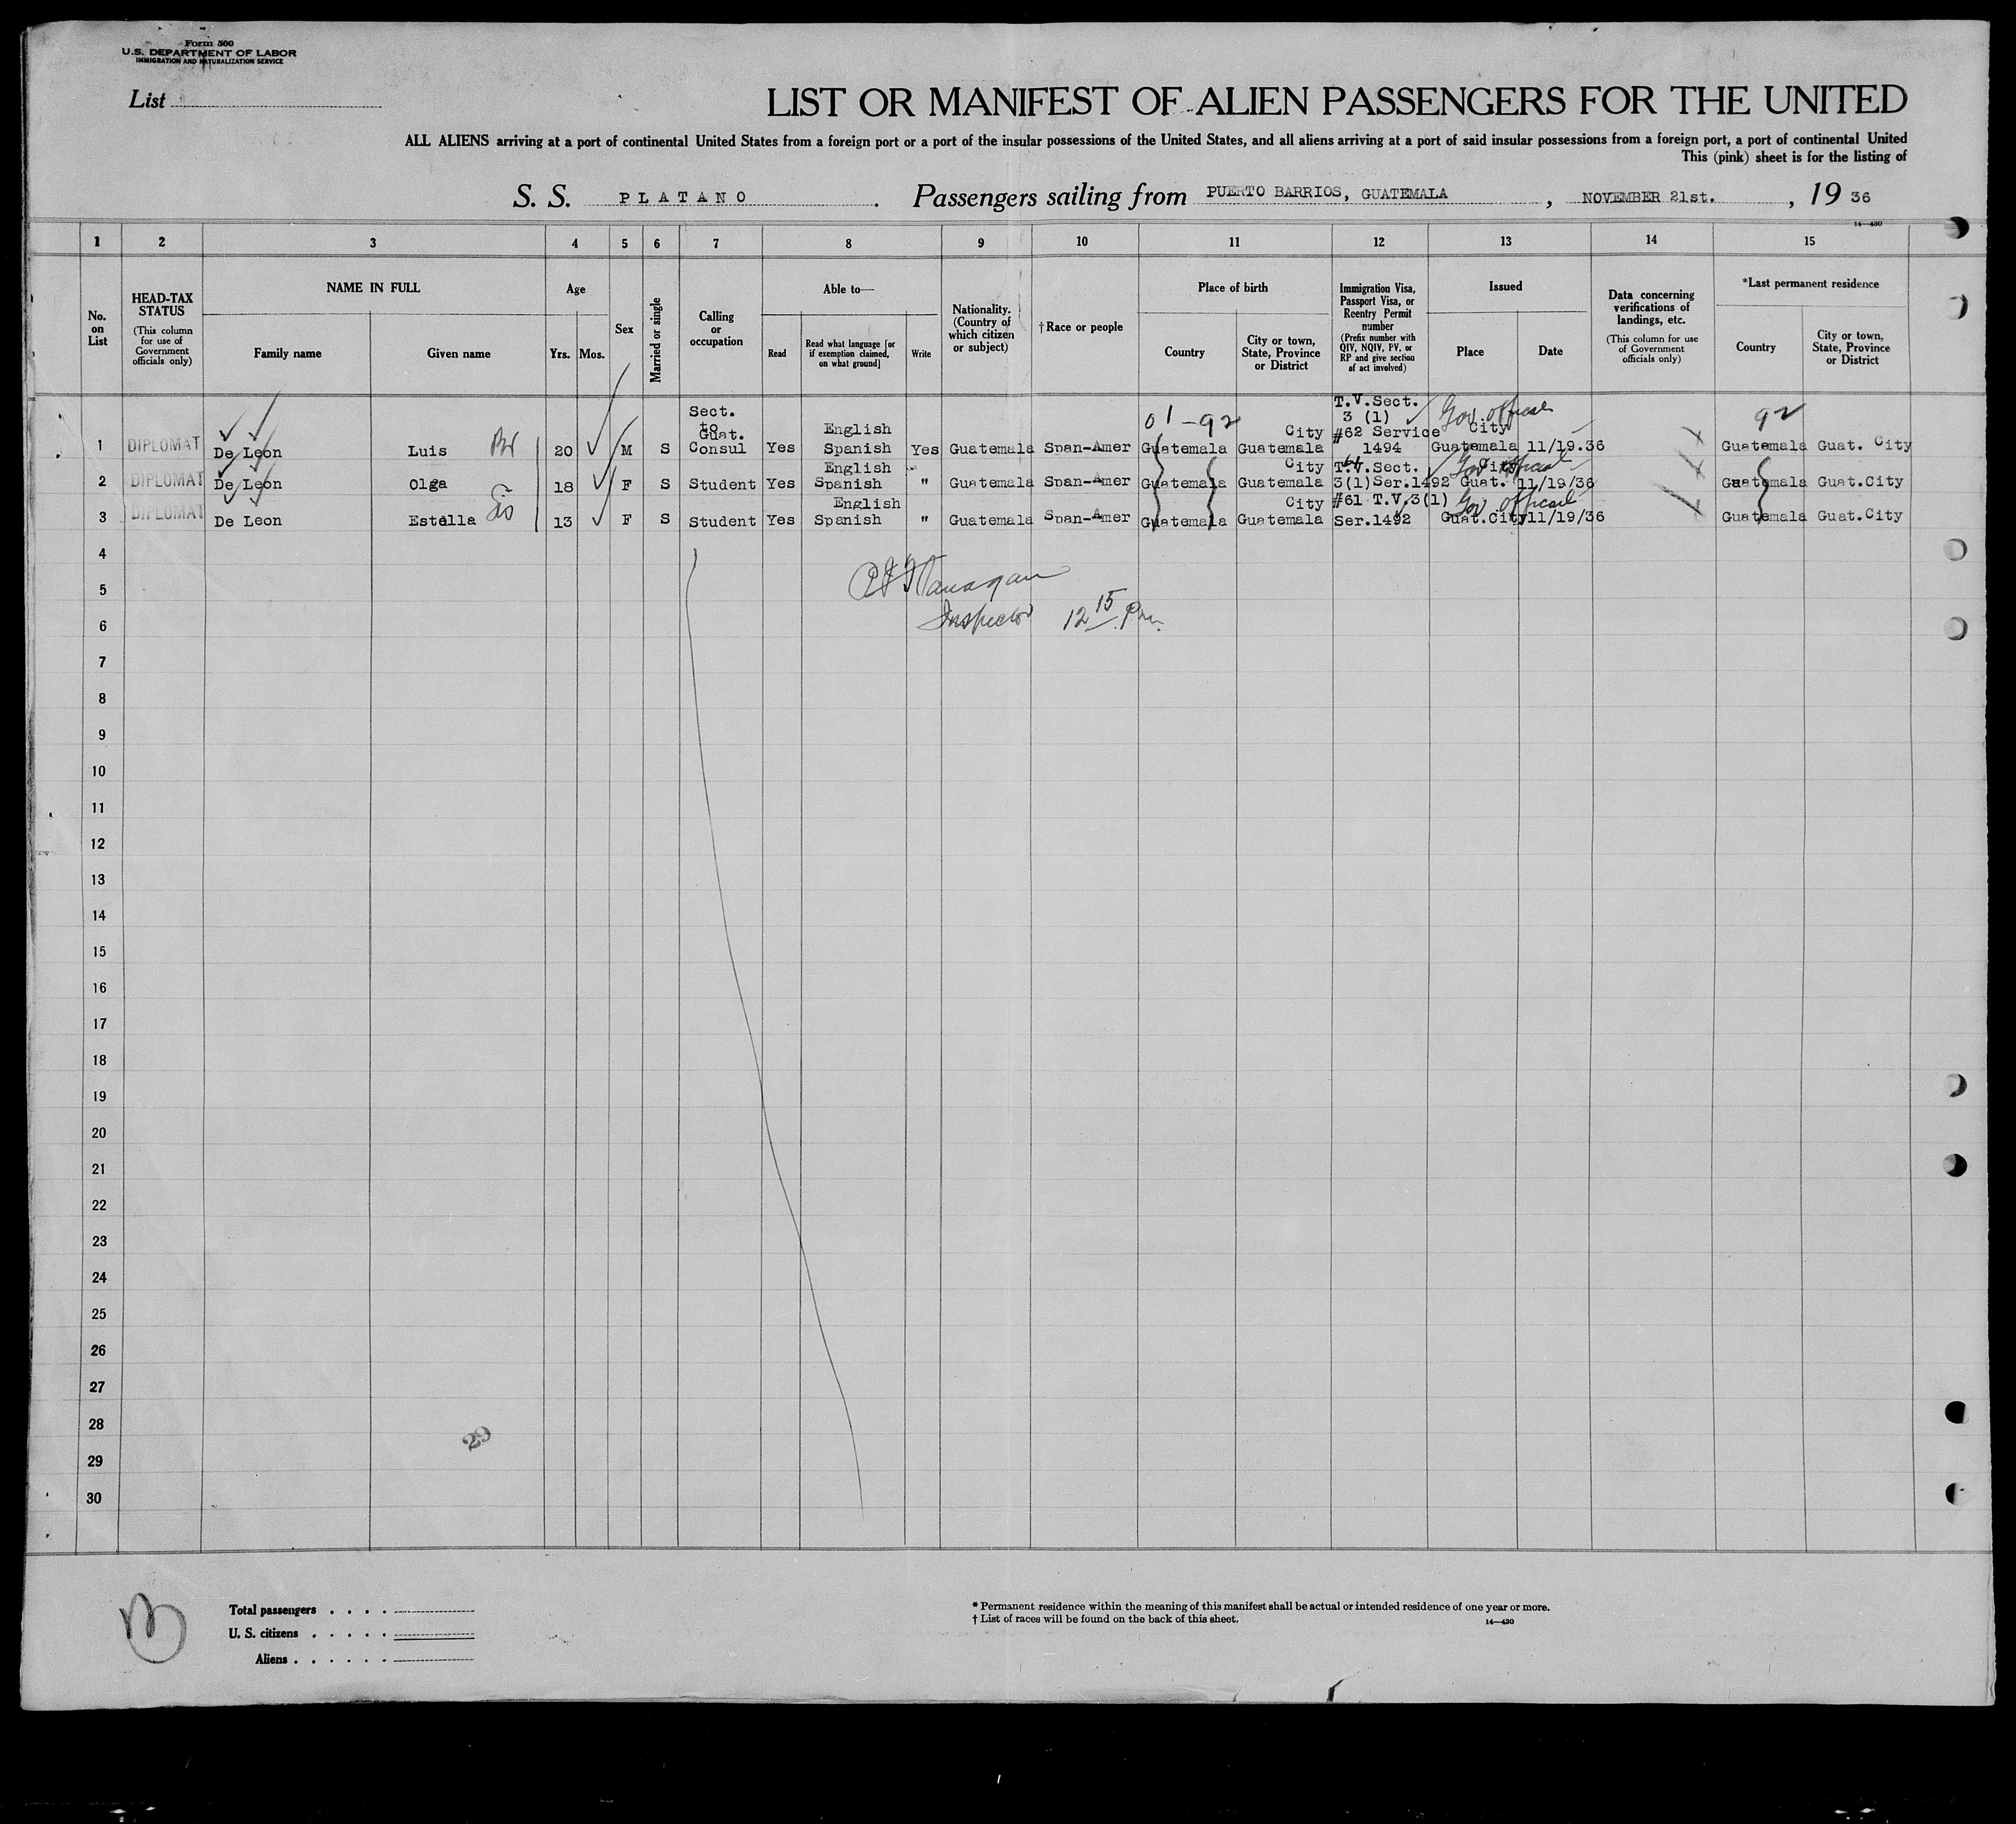 Form 500
U.S. DEPARTMENT OF LABOR
IMMIGRATION AND NATURALIZATION SERVICE
List
LIST OR MANIFEST OF ALIEN PASSENGERS FOR THE UNITED
ALL ALIENS arriving at a port of continental United States from a foreign port or a port of the insular possessions of the United States, and all aliens arriving at a port of said insular possessions from a foreign port, a port of continental United
This (pink) sheet is for the listing of
S. S. PLATANO . Passengers sailing from PUERTO BARRIOS, GUATEMALA , NOVEMBER 21st. , 19 36
14—430
1 2 3 4 5 6 7 8 9 10 11 12 13 14 15
No. on List
HEAD-TAX STATUS
(This column for use of Government officials only)
NAME IN FULL
Family name
Given name
Age
Yrs. Mos.
Sex
Married or single
Calling or occupation
Able to—
Read
Read what language [or if exemption claimed, on what ground]
Write
Nationality. (Country of which citizen or subject)
† Race or people
Place of birth
Country
City or town, State, Province or District
Immigration Visa, Passport Visa, or Reentry Permit number
(Prefix number with QIV, NQIV, PV, or RP and give section of act involved)
Issued
Place
Date
Data concerning verifications of landings, etc.
(This column for use of Government officials only)
*Last permanent residence
Country
City or town, State, Province or District
01-92
92
1 DIPLOMAT De Leon Luis Br 20 M S Sect. to Guat. Consul Yes English Spanish Yes Guatemala Span-Amer Guatemala City Guatemala T.V.Sect. 3 (1) #62 Service 1494 Gov. official City Guatemala 11/19.36 Guatemala Guat. City
2 DIPLOMAT De Leon Olga 18 F S Student Yes English Spanish " Guatemala Span-Amer Guatemala City Guatemala T.V.Sect. 3(1)Ser.1492 Gov official Guat. 11/19/36 Guatemala Guat.City
3 DIPLOMAT De Leon Estella Sis 13 F S Student Yes English Spanish " Guatemala Span-Amer Guatemala City Guatemala #61 T.V.3(1) Ser.1492 Gov official Guat.City 11/19/36 Guatemala Guat.City
4
5
Inspector 12 15 Pm.
6
7
8
9
10
11
12
13
14
15
16
17
18
19
20
21
22
23
24
25
26
27
28
29
29
30
Total passengers
U. S. citizens
Aliens
* Permanent residence within the meaning of this manifest shall be actual or intended residence of one year or more.
† List of races will be found on the back of this sheet.
14—430